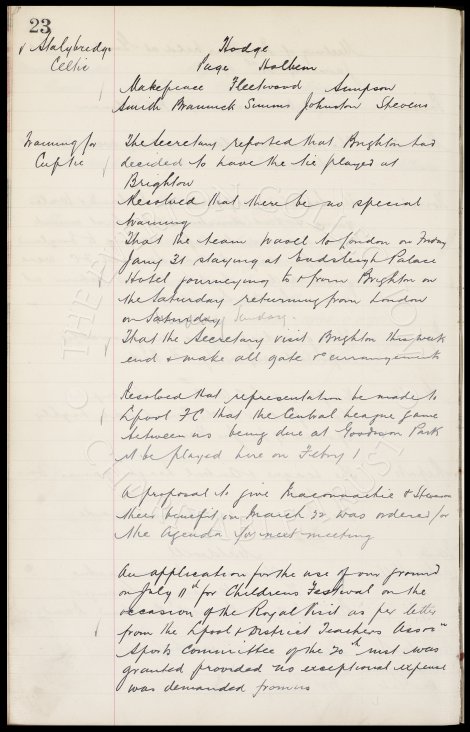 23
v Stalybridge Hodge
Celtic Page Holbem
Makepeace Fleetwood Simpson
Smith Brannick Simms Johnston Stevens
Training for The Secretary reported that Brighton had
Cuptie decided to have the tie played at
Brighton
Resolved that there be no special
training
That the team travel to London on Friday
Jany 31 staying at Endsleigh Palace
Hotel journeying to & from Brighton on
the Saturday returning from London
on Saturday Sunday.
That the Secretary visit Brighton this week
end & make all gate &c arrangements
Resolved that representation be made to
Lpool FC that the Central League game
between us being due at Goodison Park
it be played here on Febry 1
A proposal to give Maconnachie & Stevenson
their benefit on March 22 was ordered for
the agenda for next meeting
An application for the use of our ground
on July 11th for Childrens Festival on the
occasion of the Royal Visit as per letter
from the Lpool & District Teachers Assocn
Sports Committee of the 20th inst was
granted provided no exceptional expense
was demanded from us